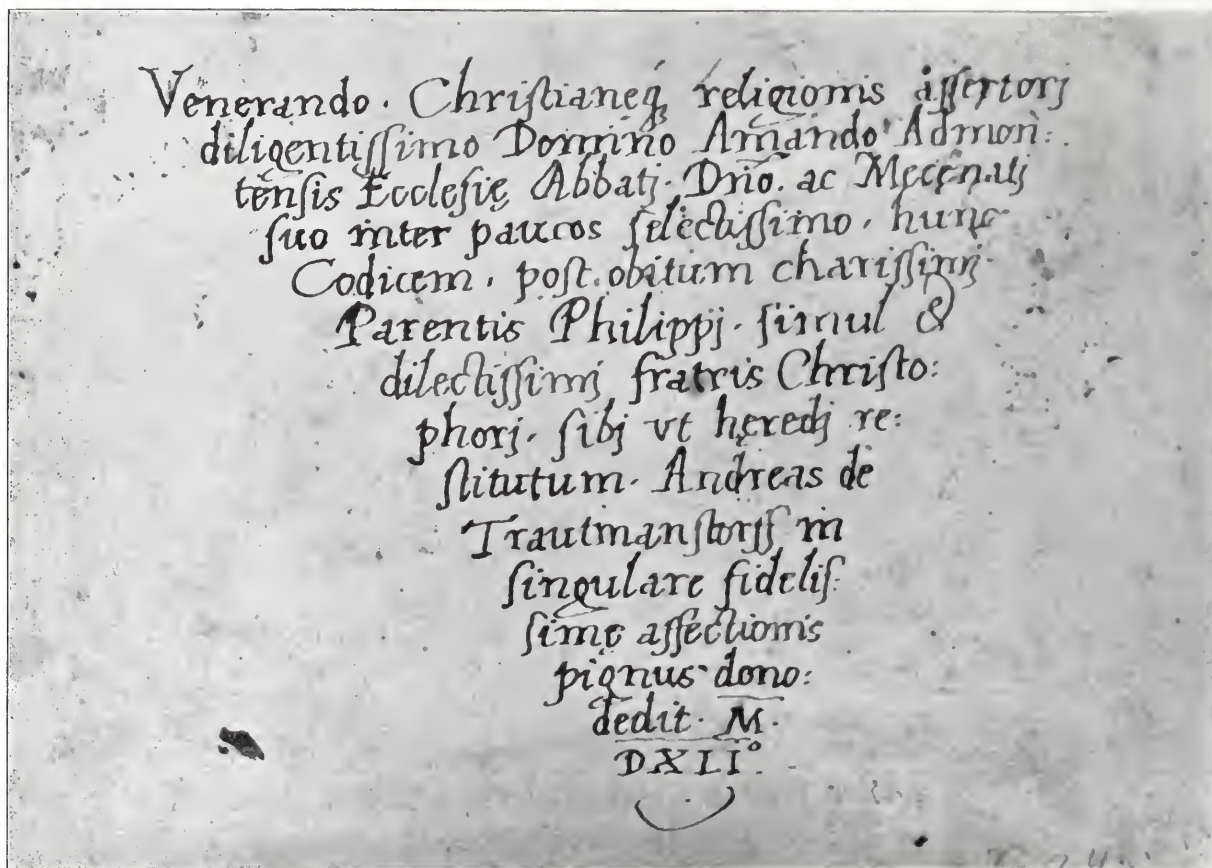 Venerando. Christianeq́ꝫ religionis assertorj
diligentissimo Domino Amando Admon:
tensis Ecclesię Abbatj. Dño. ac Mecęnatj
suo inter paucos selectissimo. hunc
Codicem. post obitum charissimj.
Parentis Philippj. simul &
dilectissimj fratris Christo:
phorj. sibj vt heredj re:
stitutum. Andreas de
Trautmanstorff in
singulare fidelis:
simę affectionis
pignus dono:
dedit. M.
DXLI°.